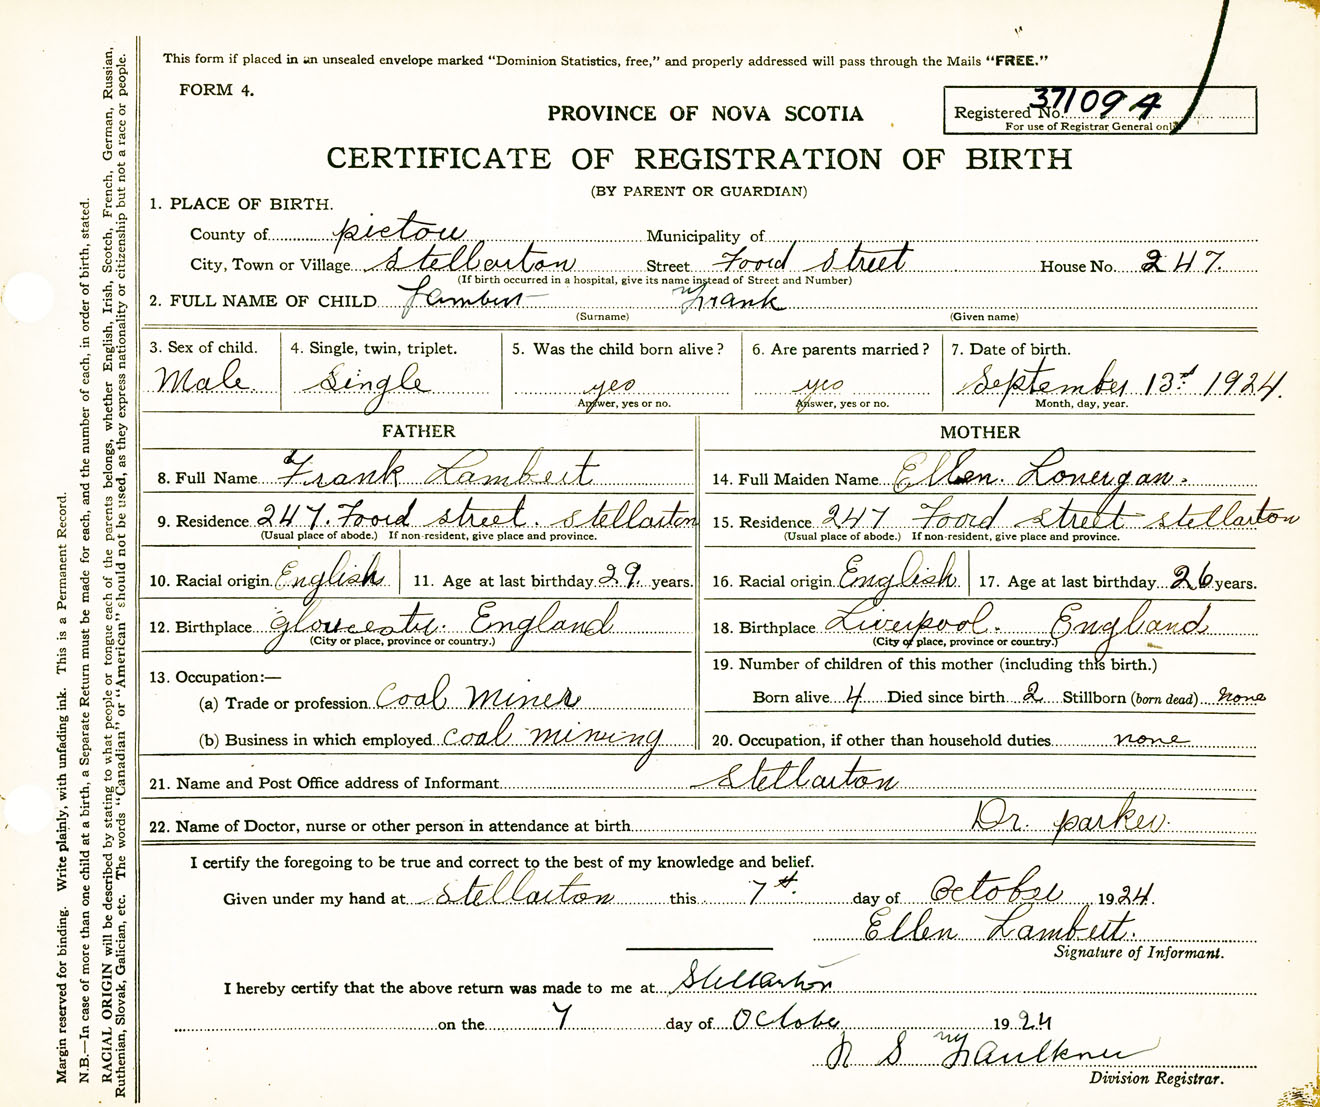 This form if placed in an unsealed envelope marked "Dominion Statistics, free," and properly addressed will pass through the Mails "FREE."
FORM 4.
PROVINCE OF NOVA SCOTIA
Registered No. 371094
For use of Registrar General only
CERTIFICATE OF REGISTRATION OF BIRTH
(BY PARENT OR GUARDIAN)
1. PLACE OF BIRTH.
County of pictou Municipality of
City, Town or Village Stellarton Street Foord Street House No. 247.
(If birth occurred in a hospital, give its name instead of Street and Number)
2. FULL NAME OF CHILD Lambert Frank
(Surname) (Given name)
3. Sex of child. 4. Single, twin, triplet. 5. Was the child born alive? 6. Are parents married? 7. Date of birth.
Male Single yes yes September 13rd 1924.
Answer, yes or no. Answer, yes or no. Month, day, year.
FATHER MOTHER
8. Full Name Frank Lambert 14. Full Maiden Name Ellen. Lonergan.
9. Residence 247. Foord street. Stellarton 15. Residence 247 Foord street stellarton
(Usual place of abode.) If non-resident, give place and province. (Usual place of abode.) If non-resident, give place and province.
10. Racial origin English 11. Age at last birthday 29. years. 16. Racial origin English 17. Age at last birthday 26 years.
12. Birthplace Gloucester. England 18. Birthplace Liverpool. England
(City or place, province or country.) (City or place, province or country.)
13. Occupation:— 19. Number of children of this mother (including this birth.)
(a) Trade or profession Coal Miner Born alive 4 Died since birth 2 Stillborn (born dead) none
(b) Business in which employed coal mining 20. Occupation, if other than household duties none
21. Name and Post Office address of Informant Stellarton
22. Name of Doctor, nurse or other person in attendance at birth Dr. parker.
I certify the foregoing to be true and correct to the best of my knowledge and belief.
Given under my hand at Stellarton this 7th. day of October 1924.
Ellen Lambert.
Signature of Informant.
I hereby certify that the above return was made to me at Stellarton
on the 7 day of October 1924
Faulkner
Division Registrar.
Margin reserved for binding. Write plainly, with unfading ink. This is a Permanent Record.
N.B.—In case of more than one child at a birth, a Separate Return must be made for each, and the number of each, in order of birth, stated.
RACIAL ORIGIN will be described by stating to what people or tongue each of the parents belongs, whether English, Irish, Scotch, French, German, Russian,
Ruthenian, Slovak, Galician, etc. The words "Canadian" or "American" should not be used, as they express nationality or citizenship but not a race or people.